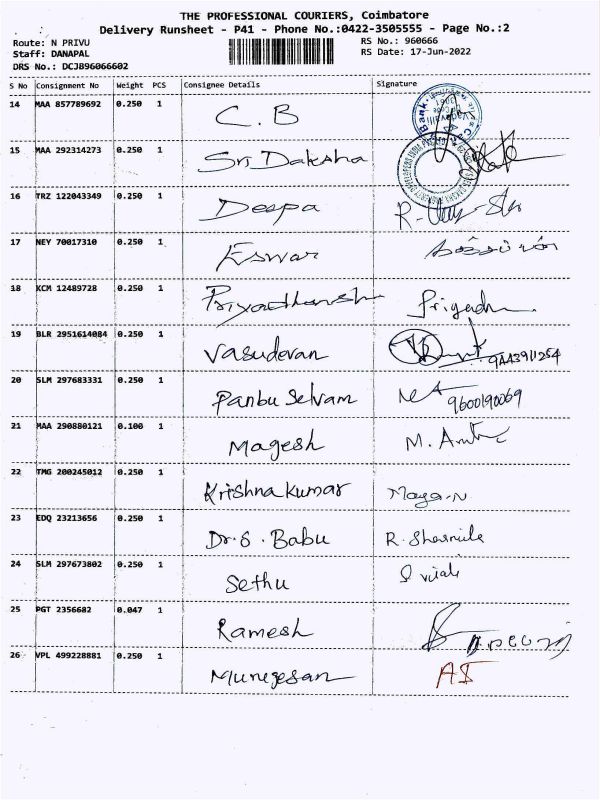 THE PROFESSIONAL COURIERS, Coimbatore
Delivery Runsheet - P41 - Phone No.:0422-3505555 - Page No.:2
Route: N PRIVU RS No.: 960666
Staff: DANAPAL RS Date: 17-Jun-2022
DRS No.: DCJB96066602
S No Consignment No Weight PCS Consignee Details Signature
14 MAA 857789692 0.250 1 C.B
15 MAA 292314273 0.250 1 Sri Daksha
16 TRZ 122043349 0.250 1 Deepa
17 NEY 70017310 0.250 1 Eswar
18 KCM 12489728 0.250 1 Priyadharshi Priyadh
19 BLR 2951614084 0.250 1 Vasudevan
20 SLM 297683331 0.250 1 Panbu Selvam 9600190069
21 MAA 290880121 0.100 1 Magesh
22 TMG 200245012 0.250 1 Krishna Kumar
23 EDQ 23213656 0.250 1 Dr.S. Babu R. Sharmila
24 SLM 297673802 0.250 1 Sethu
25 PGT 2356682 0.047 1 Ramesh
26 VPL 499228881 0.250 1 Murugesan